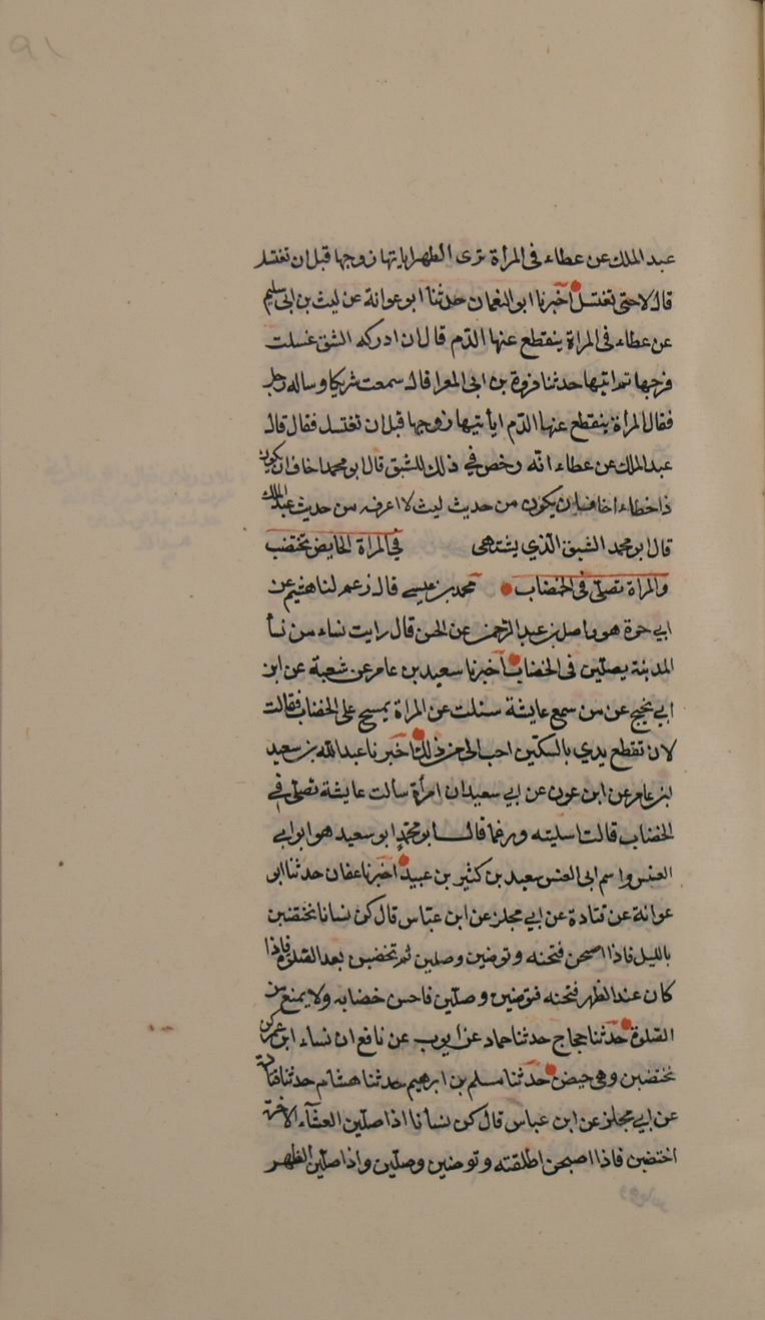 عبد الملك عن عطاء فى المرأة ترى الطهر اياتها زوجها قبل ان تغتسل
قال لا حتى تغتسل اخبرنا ابو النعمان حدثنا ابو عوانة عن ليث بن ابى سليم
عن عطاء فى المراة ينقطع عنها الدم قال ان ادركه الشبق غسلت
فرجها ثم اتيها حدثنا فروة بن ابى المعرا قال سمعت شريكا وساله رجل
فقال المرأة ينقطع عنها الدم ايأتيها زوجها قبل ان تغتسل فقال قال
عبد الملك عن عطاء انه رخص في ذلك للشبق قال ابو محمد اخاف ان يكون
ذا خطاء اخاف ان يكون من حديث ليث لا اعرفه من حديث عبد الملك
قال ابو محمد الشبق الذي يشتهى في المراة الحايض تختضب
والمراة تصلى فى الخضاب محمد بن عيسى قال زعم لنا هشيم عن
ابي حرة هو واصل بن عبد الرحمن عن الحسن قال رايت نساء من نسأ
المدينة يصلين فى الخضاب اخبرنا سعيد بن عامر عن شعبة عن ابن
ابي نجيح عن من سمع عايشة سئلت عن المراة يمسح على الخضاب فقالت
لان تقطع يدي بالسكين احب الى من ذلك اخبرنا عبد الله بن سعيد
بن عامر عن ابن عون عن ابي سعيد ان امرأة سالت عايشة تصلى في
الخضاب قالت اسليته ورغما قال ابو محمد ابو سعيد هو ابو ابي
العنبس واسم ابى العنبس سعيد بن كثير بن عبيد اخبرنا عفان حدثنا ابو
عوانة عن قتادة عن ابي مجلز عن ابن عباس قال كن نسانا يختضبن
بالليل فاذا اصبحن فتحنه وتوضين وصلين ثم تخضبن بعد الصلوة فاذا
كان عند الظهر فتحنه فتوضين وصلين فاحسن خضابه ولا يمنع من
الصلوة حدثنا حجاج حدثنا حماد عن ايوب عن نافع ان نساء ابن عمر كن
يختضبن وهى حيض حدثنا مسلم بن ابرهيم حدثنا هشام حدثنا قتادة
عن ابي مجلز عن ابن عباس قال كن نسأنا اذا صلين العشآء الاخرة
اختضبن فاذا اصبحن اطلقنه وتوضين وصلين واذا صلين الظهر